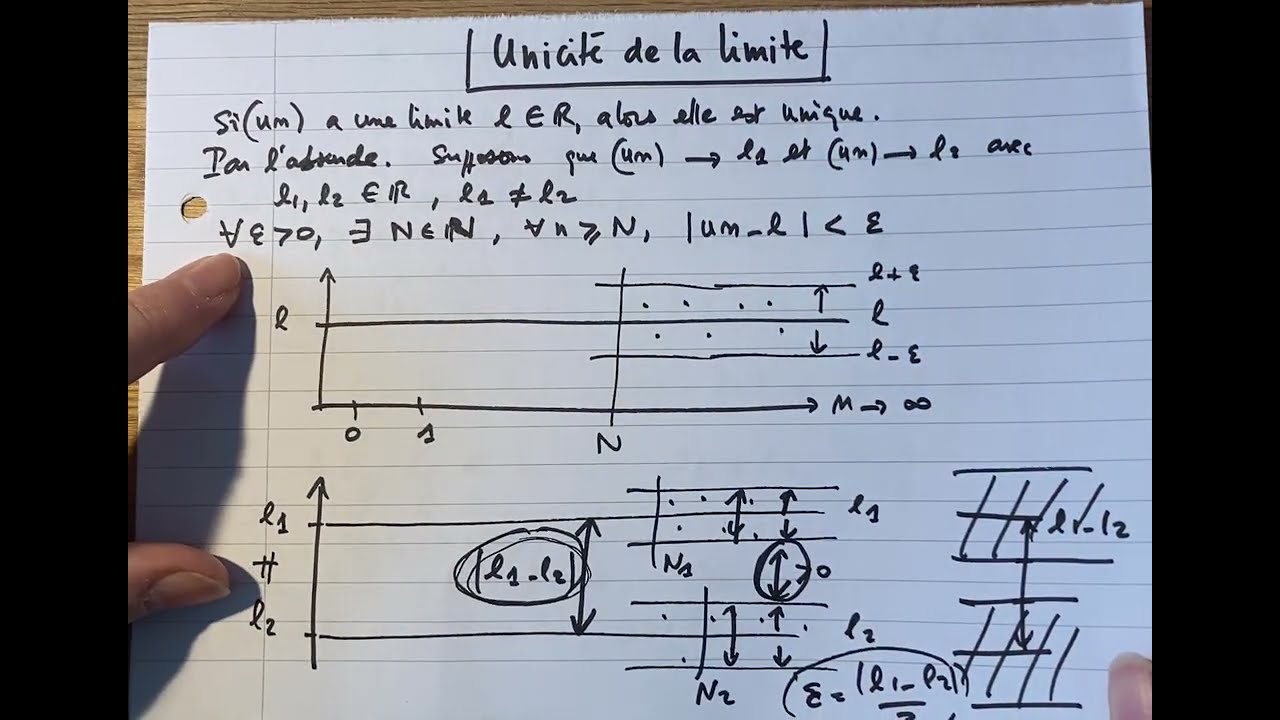 Unicité de la limite
Si (un) a une limite l ∈ ℝ, alors elle est unique.
Par l'absurde. Supposons que (un) → l1 et (un) → l2 avec
l1, l2 ∈ ℝ, l1 ≠ l2
∀ ε > 0, ∃ N ∈ ℕ, ∀ n ⩾ N, |un - l| < ε
l + ε
l
l
l - ε
n → ∞
0 1 N
l1
l1
|l1 - l2|
N1
>0
l1 - l2
≠
l2
l2
N2
ε = |l1 - l2|